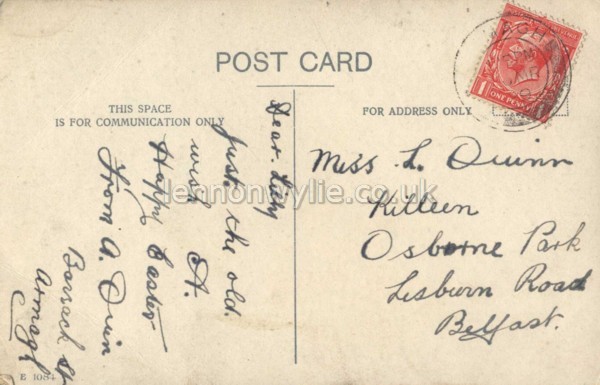 POST CARD
THIS SPACE
IS FOR COMMUNICATION ONLY
FOR ADDRESS ONLY
1 ONE PENNY
Dear Lily
Just the old
wish A.
Happy Easter
From A. Quin
Barrack St
Armagh
Miss L. Quinn
Killeen
Osborne Park
Lisburn Road
Belfast.
lennonwylie.co.uk
E 1084